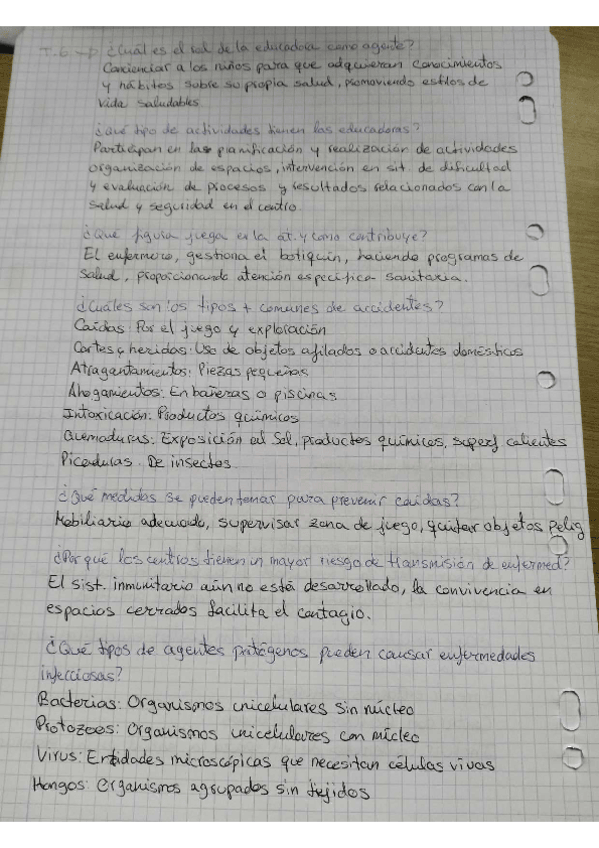 T.6 → ¿Cuál es el rol de la educadora como agente?
Concienciar a los niños para que adquieran conocimientos
y hábitos sobre su propia salud, promoviendo estilos de
vida saludables.
¿Qué tipo de actividades tienen las educadoras?
Participan en las planificación y realización de actividades
organización de espacios, intervención en sit. de dificultad
y evaluación de procesos y resultados relacionados con la
salud y seguridad en el centro.
¿Que figura juega en la at. y como contribuye?
El enfermero, gestiona el botiquín, haciendo programas de
salud, proporcionando atención específica sanitaria.
¿Cuáles son los tipos + comunes de accidentes?
Caídas: Por el juego y exploración
Cortes y heridas: Uso de objetos afilados o accidentes domésticos
Atragantamientos: Piezas pequeñas
Ahogamientos: En bañeras o piscinas
Intoxicación: Productos químicos
Quemaduras: Exposición al Sol, productos químicos, superf calientes
Picaduras: De insectos.
¿Qué medidas se pueden tomar para prevenir caídas?
Mobiliario adecuado, supervisar zona de juego, quitar objetos pelig
¿Por qué los centros tienen un mayor riesgo de transmisión de enfermed?
El sist. inmunitario aún no está desarrollado, la convivencia en
espacios cerrados facilita el contagio.
¿Qué tipos de agentes patógenos pueden causar enfermedades
infecciosas?
Bacterias: Organismos unicelulares sin núcleo
Protozoos: Organismos unicelulares con núcleo
Virus: Entidades microscópicas que necesitan células vivas
Hongos: Organismos agrupados sin tejidos